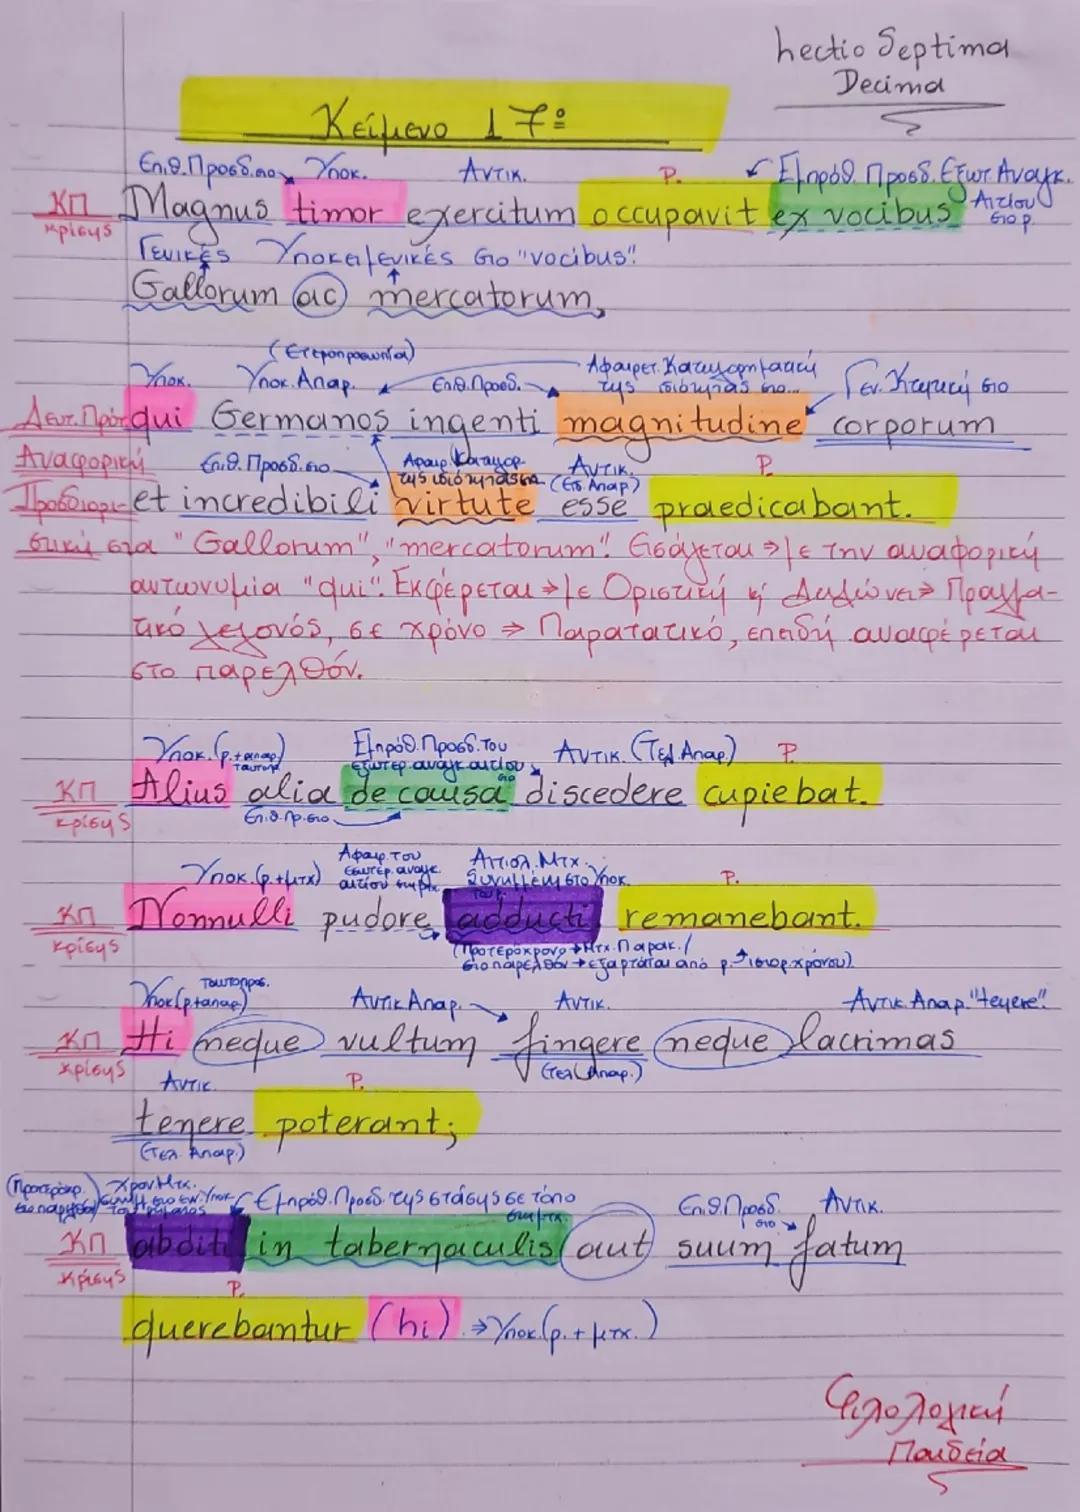 Lectio Septima
Decima
Κείμενο 17º
Επιθ. Προσδ. στο Υποκ. Αντικ. Ρ. Εμπρόθ. Προσδ. Εξωτ. Αναγκ.
ΚΠ Magnus timor exercitum occupavit ex vocibus Αιτίου
κρίσης στο ρ.
Γενικές Υποκειμενικές στο "vocibus".
Gallorum ac mercatorum,
(Ετεροπροσωπία)
Υποκ. Υποκ. Απαρ. Επιθ. Προσδ. Αφαιρετ. Κατηγορηματική
της ιδιότητας στο... Γεν. Κτητική στο
Δευτ. Πρότ. qui Germanos ingenti magnitudine corporum
Αναφορική Επιθ. Προσδ. στο Αφαιρ. Κατηγορ. Αντικ. Ρ.
της ιδιότητας στο (Ειδ. Απαρ)
Προσδιορι- et incredibili virtute esse praedicabant.
στική στα "Gallorum", "mercatorum". Εισάγεται → με την αναφορική
αντωνυμία "qui". Εκφέρεται → με Οριστική κ' Δηλώνει → Πραγμα-
τικό γεγονός, σε χρόνο → Παρατατικό, επειδή αναφέρεται
στο παρελθόν.
Υποκ. (ρ.+απαρ) Εμπρόθ. Προσδ. του Αντικ. (Τελ. Απαρ.) Ρ.
ταυτοπρ. εξωτερ. αναγκ. αιτίου στο
ΚΠ Alius alia de causa discedere cupiebat.
κρίσης Επιθ. πρ. στο
Υποκ. (ρ.+μτχ) Αφαιρ. του Αιτιολ. Μτχ. Ρ.
εσωτερ. αναγκ. Συνημμένη στο Υποκ.
αιτίου στη μτχ.
ΚΠ Nonnulli pudore adducti remanebant.
κρίσης (Προτερόχρονο → Μτχ. Παρακ./
στο παρελθόν → εξαρτάται από ρ. ιστορ. χρόνου)
Ταυτοπροσ.
Υποκ (ρ+απαρ) Αντικ Απαρ. Αντικ. Αντικ. Απαρ. "tenere".
ΚΠ Hi neque vultum fingere neque lacrimas
κρίσης Αντικ. Ρ. (Τελ. Απαρ.)
tenere poterant;
(Τελ. Απαρ.)
(Προτερόχρ. Χρον Μτχ. Εμπρόθ. Προσδ. της στάσης σε τόπο Επιθ. Προσδ. Αντικ.
στη μτχ. στο
ΚΠ abditi in tabernaculis aut suum fatum
κρίσης Ρ.
querebantur (hi). → Υποκ. (ρ. + μτχ.)
Φιλολογική
Παιδεία